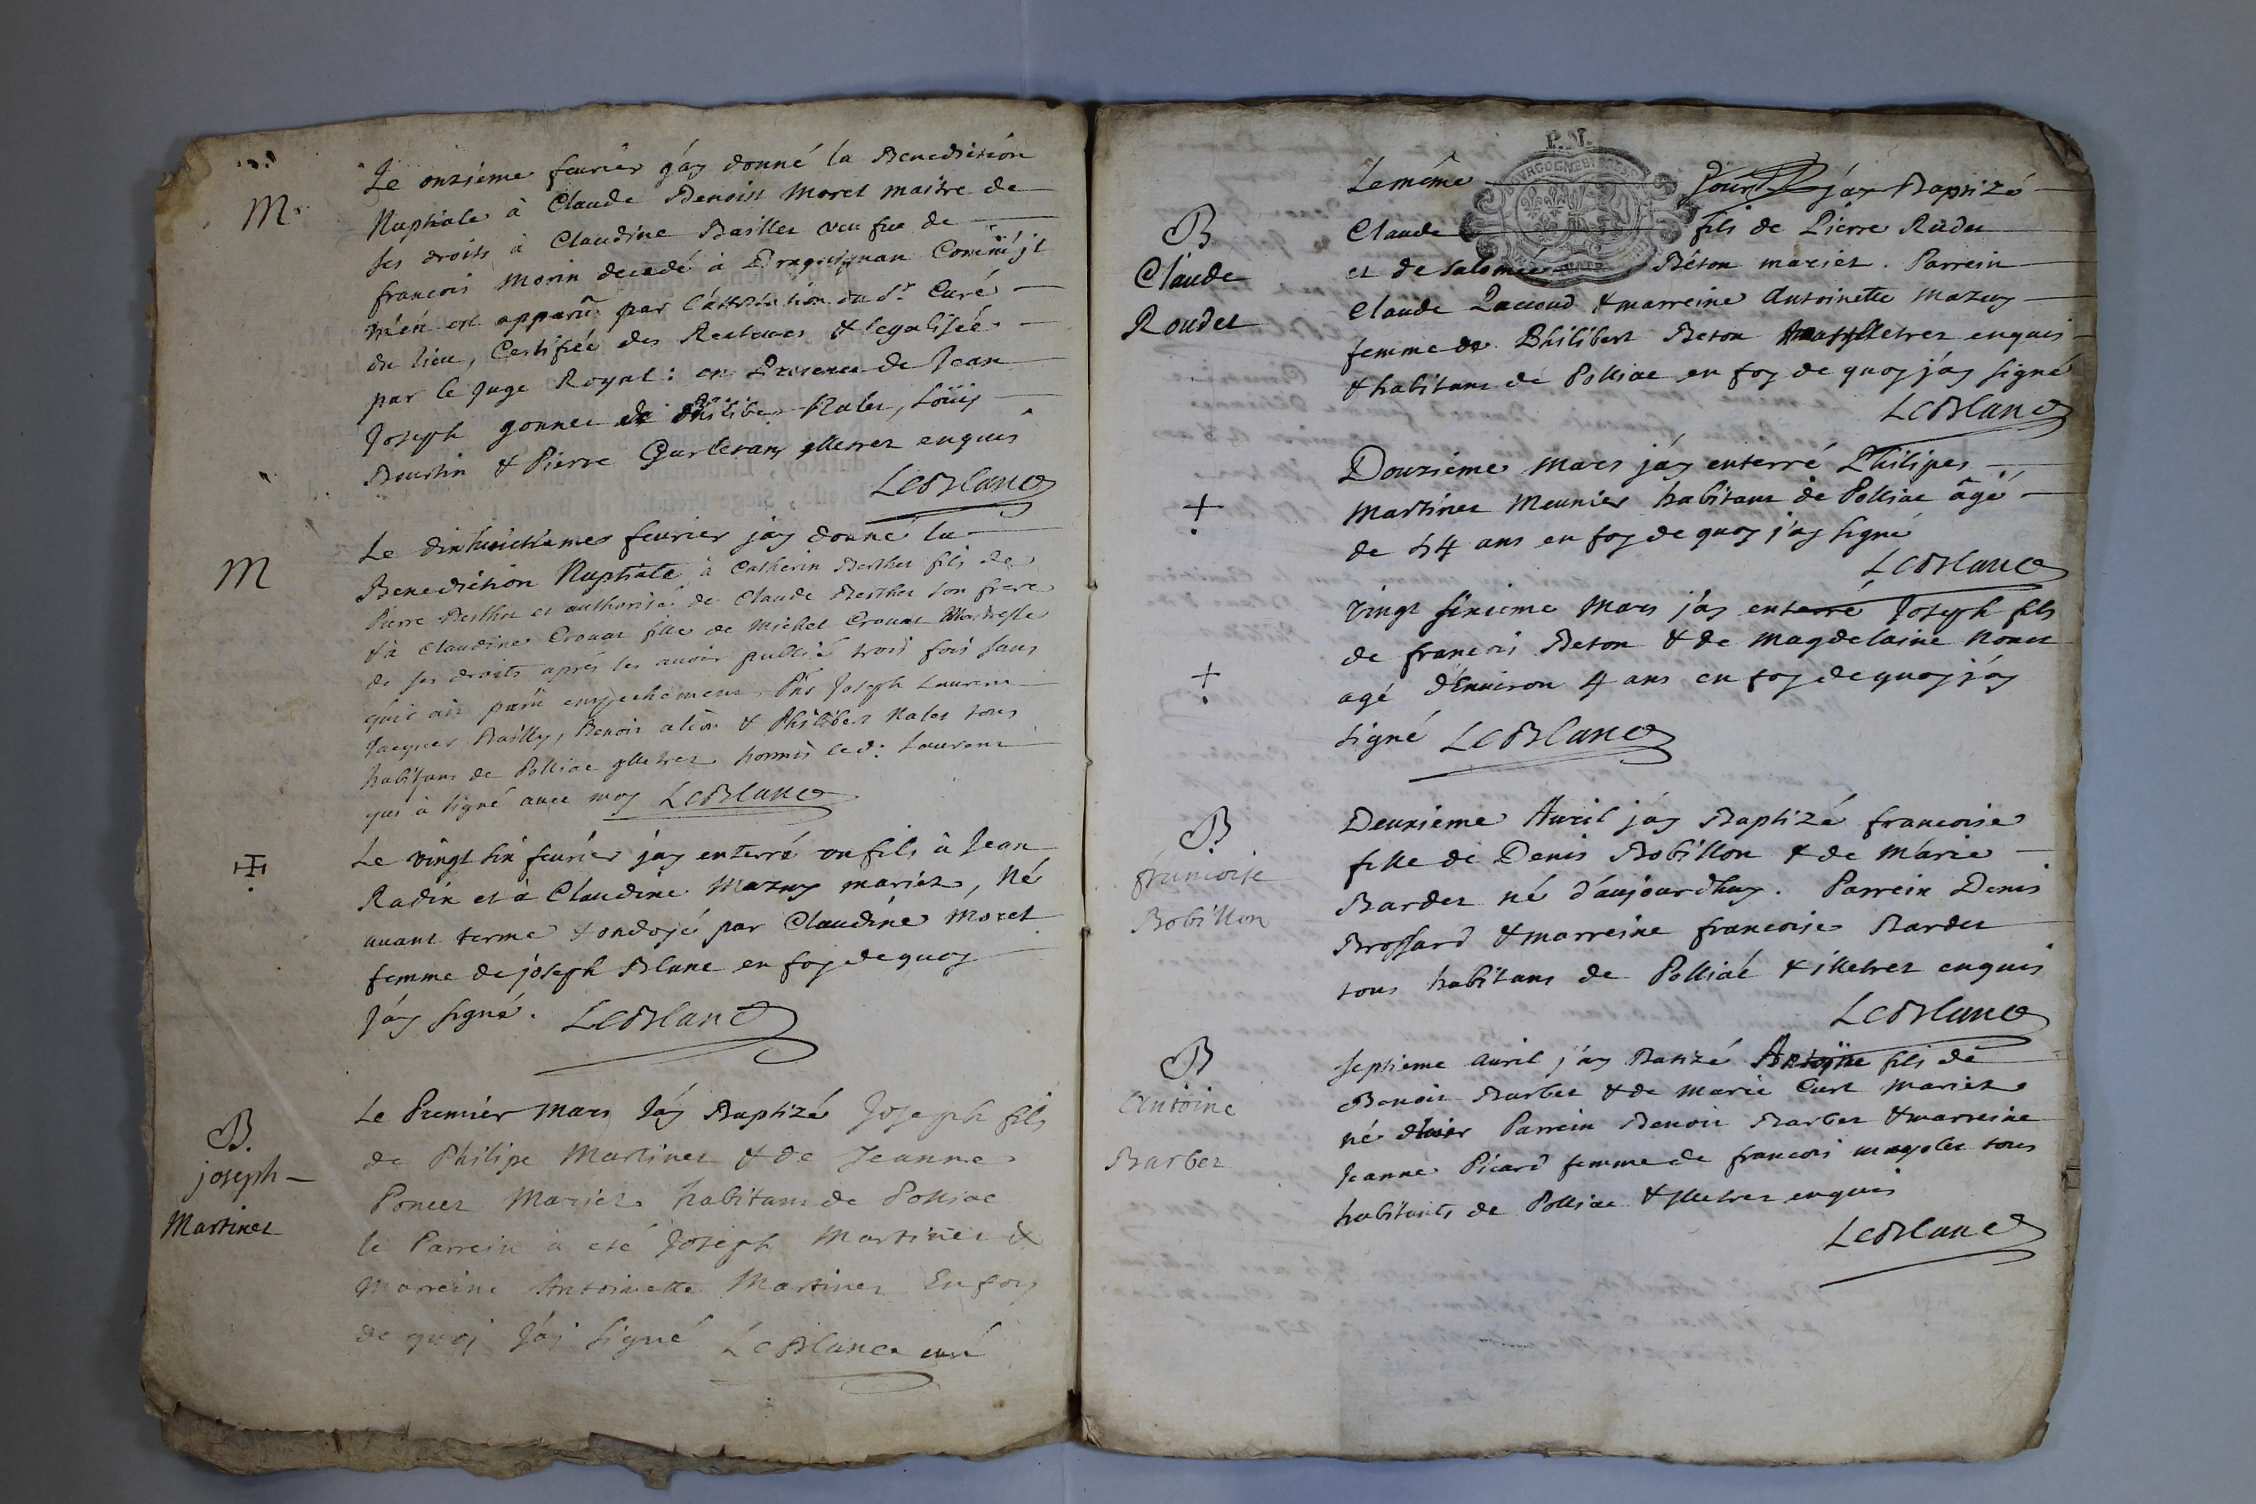 M.
Le onzieme feurier j'áy donné la Benediction
Nuptiale à Claude Benoist Moret maitre de
ses droits à Claudine Baillet veufue de
francois Morin decedé à Draguignan Comme jl
m'en est apparû par l'attestation du Sr. Curé
du lieu, Certifiée des Recteurs & legalisée
par le Juge Royal: en Presence de Jean
Joseph gonnet de Philiber Nalet, Loüis
Bourtin & Pierre jlletrez enquis
LeBlanc
M
Le dixhuictieme feurier jáy donné la
Benediction Nuptiale à Catherin Berthet fils de
Pierre Berthet et authorisé de Claude Berthet son frere
& à Claudine Crouat fille de Michel Crouat Maitresse
de ses droits aprés les auoir publié trois fois sans
qu'il ait parû empechement, Pñs Joseph Laurent
Jacques Bailly, Benoit & Philiber Nalet tous
habitans de Polliac jlletrez hormis led: Laurent
qui à signé auec moy LeBlanc
Le vingt six feurier jáy enterré un fils à Jean
Radix et à Claudine Mazuy mariez, Né
auant terme & ondoyé par Claudine Moret
femme de joseph Blanc en foy de quoy
Jáy signé. LeBlanc
B.
joseph
Martinet
Le Premier Mars Jáy Baptizé Joseph fils
de Philipe Martinet & de Jeanne
Poncet Mariez habitans de Polliac
le Parrein à eté Joseph Martinet &
Marreine Antoinette Martinet En foy
de quoj Jáj signé LeBlanc curé
B
Claude
Roudet
Le même Jour jáy Baptizé
Claude fils de Pierre Rudet
et de Salomée Béton mariez. Parrein
Claude & marreine Antoinette Mazuy
femme de Philibert Beton jlletrez enquis
& habitans de Polliac en foy de quoy jáy signé
LeBlanc
Douzieme mars jáy enterré Philipes
Martinet Meunier habitant de Polliac âgé
de 54 ans en foy de quoy jáy signé
LeBlanc
Vingt sixieme Mars jáy enterré Joseph fils
de francois Beton & de Magdelaine Nonet
agé d'Enuiron 4 ans en foy de quoy jáy
signé LeBlanc
B
francoise
Bobillon
Deuxieme Auril jáy Baptizé francoise
fille de Denis Bobillon & de Marie
Bardet né d'aujourdhuy. Parrein Denis
Brossard & marreine francoise Bardet
tous habitans de Polliac & illetrez enquis
LeBlanc
B
Antoine
Barbet
Septieme auril jáy Batizé Antoine fils de
Benoit Barbet & de Marie Curt Mariez
né d'hier Parrein Benoit Barbet & marreine
Jeanne Picard femme de francois tous
habitants de Polliac & jlletrez enquis
LeBlanc